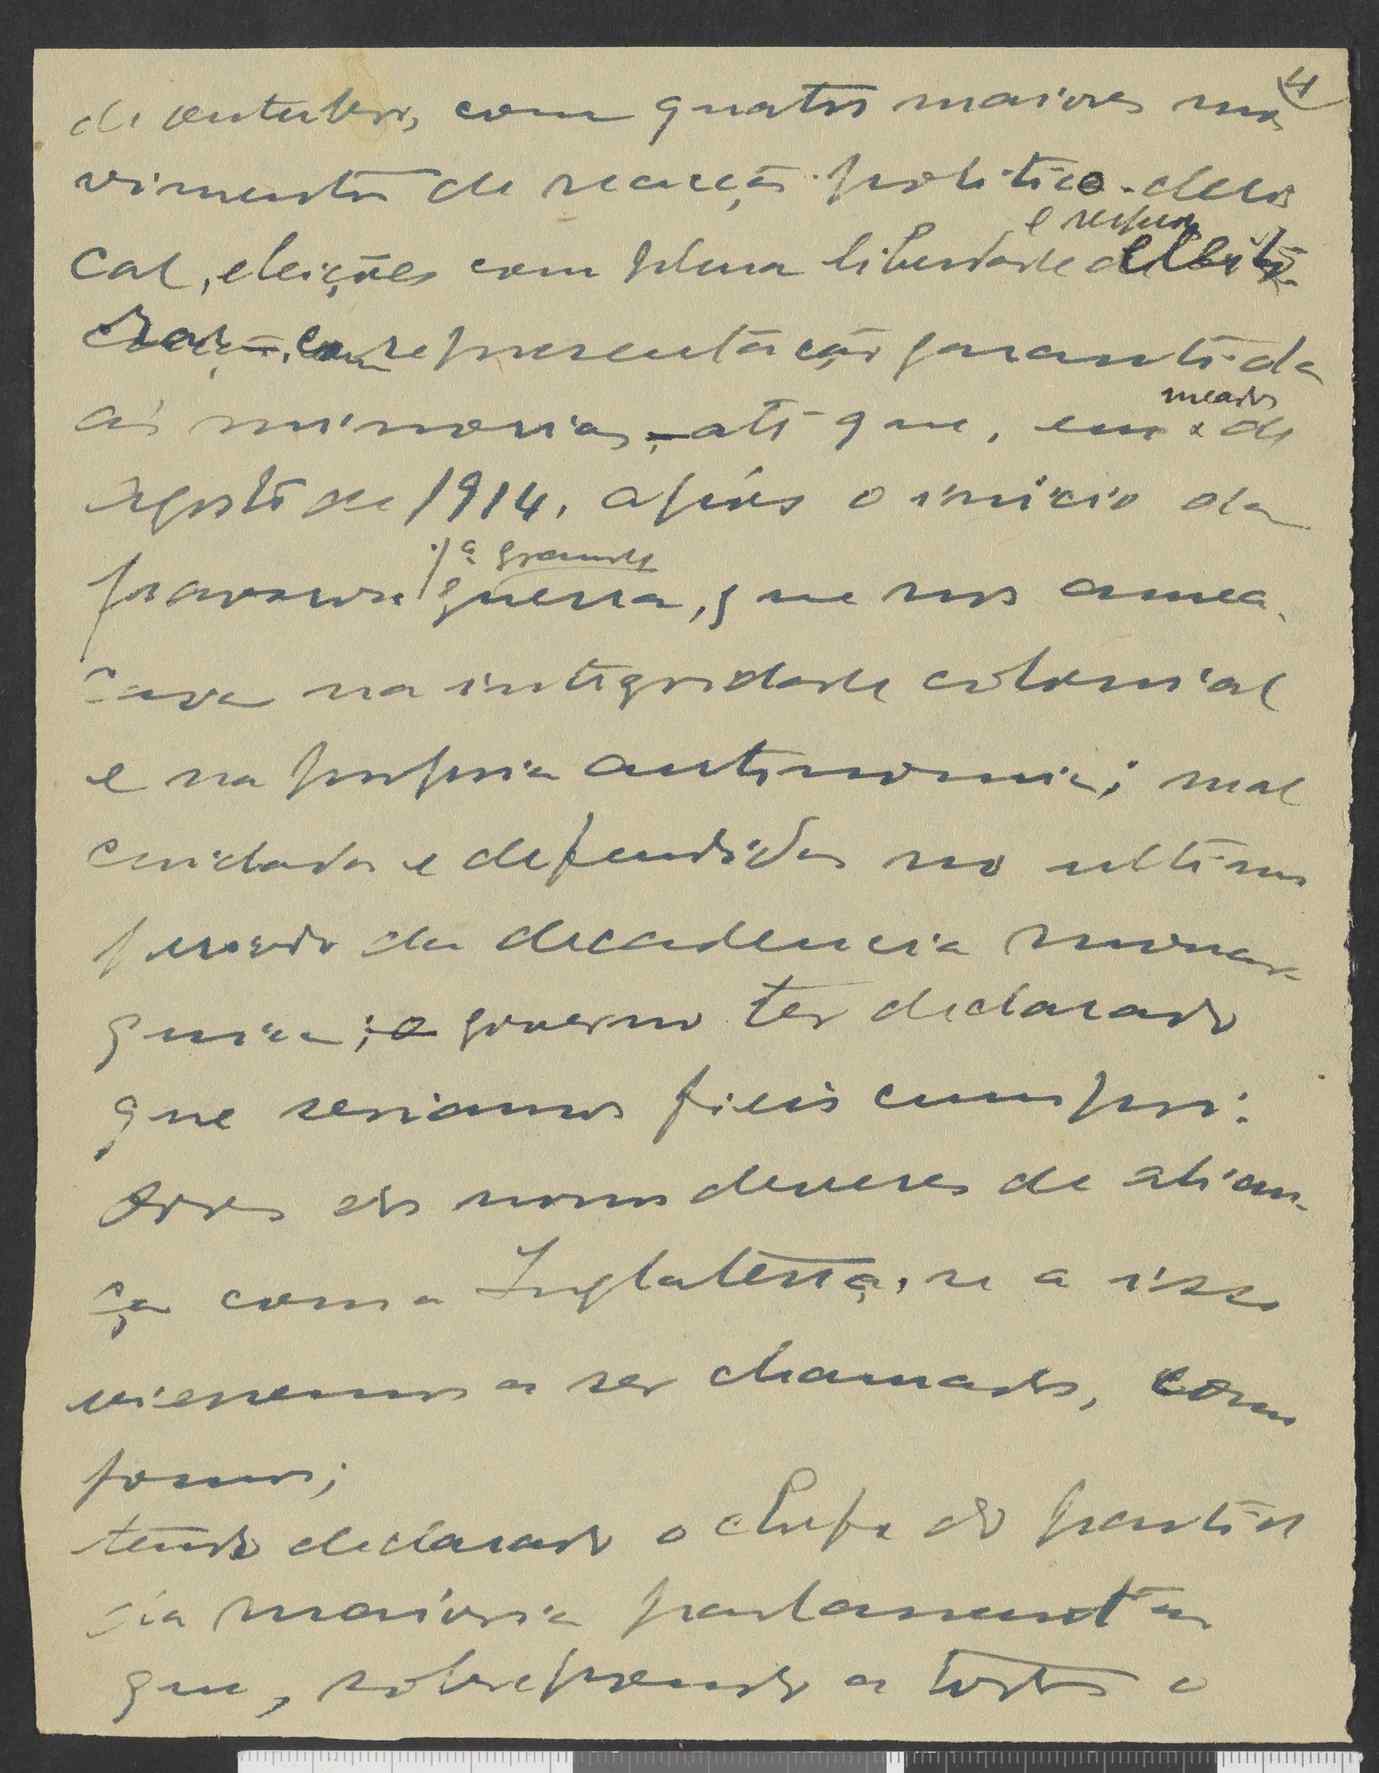 4
de outubro, com quatro maiores mo
vimentos de reacção politico-cleri
cal, eleições com plena liberdade
representação garantida
ás minorias, até que, em meados de
agosto de 1914, após o inicio da
pavorosa 1ª grande guerra, que nos amea-
çava na integridade colonial
e na propria autonomia; mal
cuidadas e defendidas no ultimo
periodo da decadencia monar-
quica; o governo ter declarado
que seriamos fieis cumpri-
dores dos nossos deveres de alian-
ça com a Inglaterra, se a isso
viessemos a ser chamados, como
fomos;
tendo declarado o chefe do partido
da maioria parlamentar
que, sobrepondo a todos o